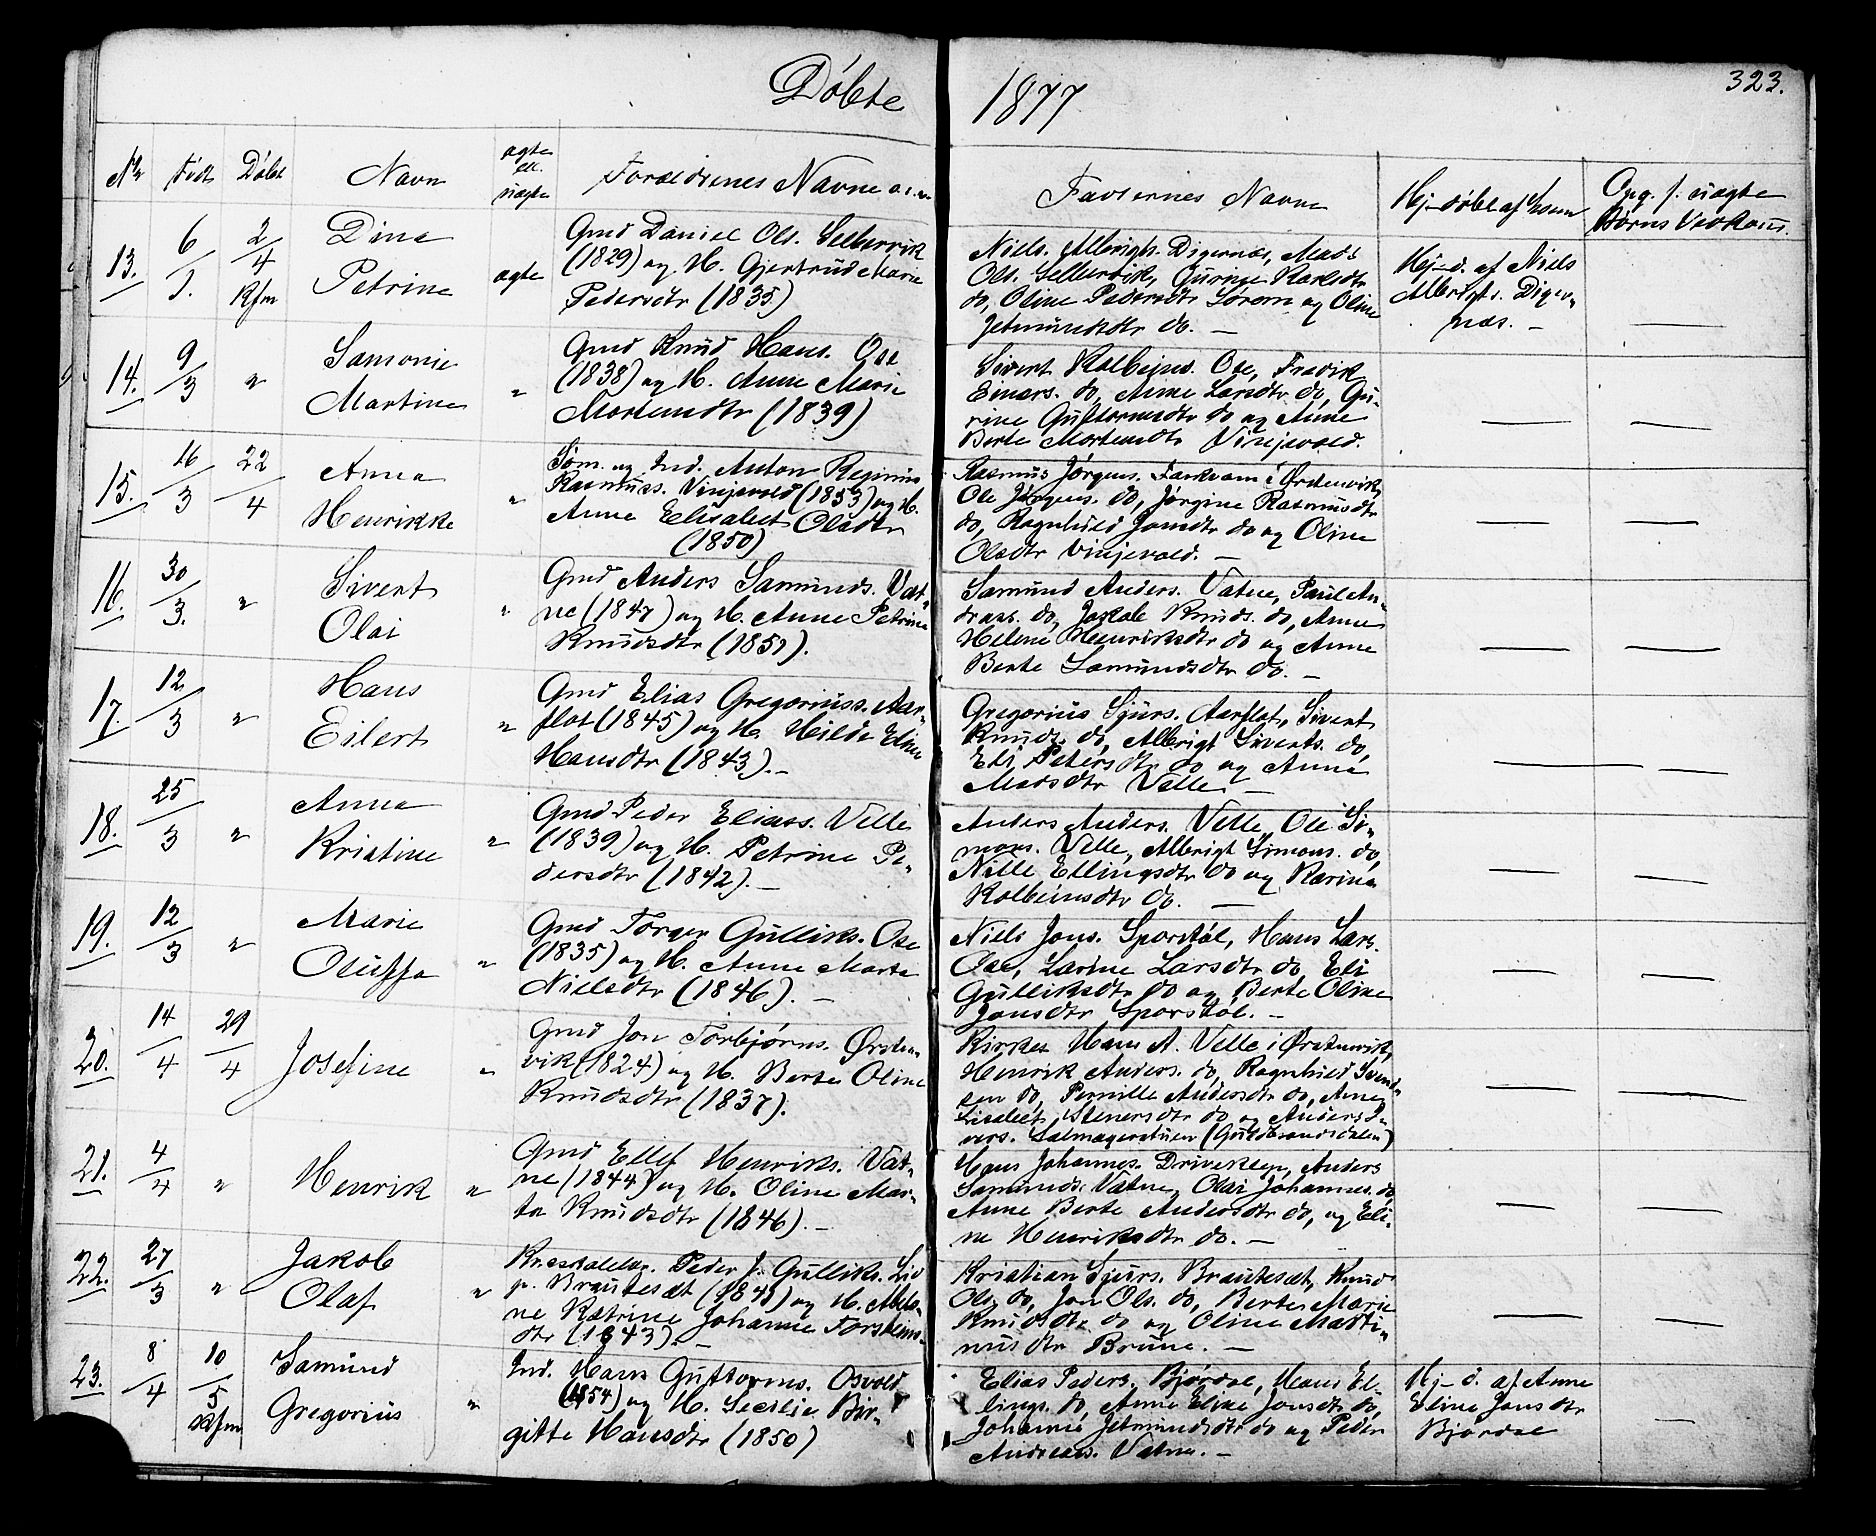 Döbte 1877 323.
No Födt Döbt Navn ægte ell. uægte Forældrenes Navne
Faddernes Navne Hj-döbt af hvem Opg. f. uægte Börns Vedkom.
13. 6/1. 2/4 Kfm Dina Petrine ægte
Gmd Daniel Ols. Selbervik
(1829) og H. Gjertrud Marie
Pedersdtr (1835)
Niels Albrigts. Digernæs, Mads
Ols. Selbervik, Gurine Karlsdtr
do, Oline Pedersdtr Sörem og Oline
Jetmundsdtr do. —
Hj-d. af Niels
Albrigts. Diger-
næs. —
14. 9/3 " Samonie Martine "
Gmd Knud Hans. Ose
(1838) og H. Anne Marie
Mortensdtr (1839)
Sivert Kolbeins. Ose, Fredrik
Einars. do, Anne Larsdtr do, Gu-
rine Guttormsdtr do og Anne
Berte Mortensdtr Vinjevold.
15. 16/3 22/4 Anna Henrikke "
Söm. og Ind. Anton Reginius
Rasmuss. Vinjevold (1853) og H.
Anne Elisabet Olsdtr
(1850)
Rasmus Jörgens. i Örstenvik,
Ole Jörgens. do, Jörgine Rasmusdtr
do, Ragnhild Jonsdtr do og Oline
Olsdtr Vinjevold. —
16. 30/3. " Sivert Olai "
Gmd Anders Samunds. Vat-
ne (1847) og H. Anne Petrine
Knudsdtr (1851).
Samund Anders. Vatne, Paul An-
dreas. do, Jakob Knuds. do, Anne
Helene Henriksdtr do og Anne
Berte Samundsdtr do. —
17. 12/3 " Hans Eilert "
Gmd Elias Gregoriuss. Aar-
flot (1845) og H. Hilde Eline
Hansdtr (1843). —
Gregorius Sjurs. Aarflot, Sivert
Knuds. do, Albrigt Siverts. do,
Eli Petersdtr do og Anne
Madsdtr Velle. —
18. 25/3 " Anna Kristine "
Gmd Peder Eliass. Velle
(1839) og H. Petrine Pe-
dersdtr (1842). —
Anders Anders. Velle, Ole Si-
mons. Velle, Albrigt Simons. do,
Nille Ellingsdtr do og Karine
Kolbeinsdtr do. —
19. 12/3 " Marie Oluffa "
Gmd Torger Gulliks. Ose
(1835) og H. Anne Marta
Nielsdtr (1846). —
Niels Jons. Sporstöl, Hans Lars.
Ose, Larine Larsdtr do, Eli
Gulliksdtr do og Berte Oline
Jonsdtr Sporstöl. —
20. 14/4 29/4 Josefine "
Gmd Jon Torbjörns. Örsten-
vik (1824) og H. Berte Oline
Knudsdtr (1837).
Kirkes. Hans A. Velle i Örstenvik,
Henrik Anders. do, Ragnhild Svend-
sen do, Pernille Andersdtr do, Anne
Lisabet Stenersdtr do og Anders I-
vers. (Gudbrandsdalen)
21. 4/4 " Henrik "
Gmd Ellef Henriks. Vat-
ne (1844) og H. Oline Mar-
ta Knudsdtr (1846). —
Hans Johannes. Driveklep, Anders
Samunds. Vatne, Olai Johannes. do,
Anne Berte Andersdtr do, og Eli-
ne Henriksdtr do. —
22. 27/3 " Jakob Olaf "
Peder J. Gulliks. Lid
p. Brautesæt og H. Abelo-
ne Katrine Johanne Torsteins-
dtr (1843). —
Kristian Sjurs. Brautesæt, Knud
Ols. do, Jon Ols. do, Berte Marie
Knudsdtr do og Oline Marti-
nusdtr Brune. —
23. 8/4 10/5 Kfm Samund Gregorius "
Ind. Hans Guttorms. Osvold
(1854) og H. Secilie Bir-
gitte Hansdtr (1850)
Elias Peders. Björdal, Hans El-
lings. do, Anne Eline Jonsdtr do,
Johanne Jetmundsdtr do og Peder
Andreas. Vatne. —
Hj-d. af Anne
Eline Jonsdtr
Björdal